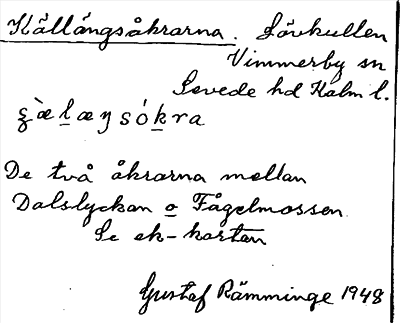 Källängsåkrarna. Lövkullen
Vimmerby sn
Sevede hd Kalm l.
De två åkrarna mellan
Dalslyckan o Fågelmossen
Se ek-kartan
Gustaf Rämminge 1948